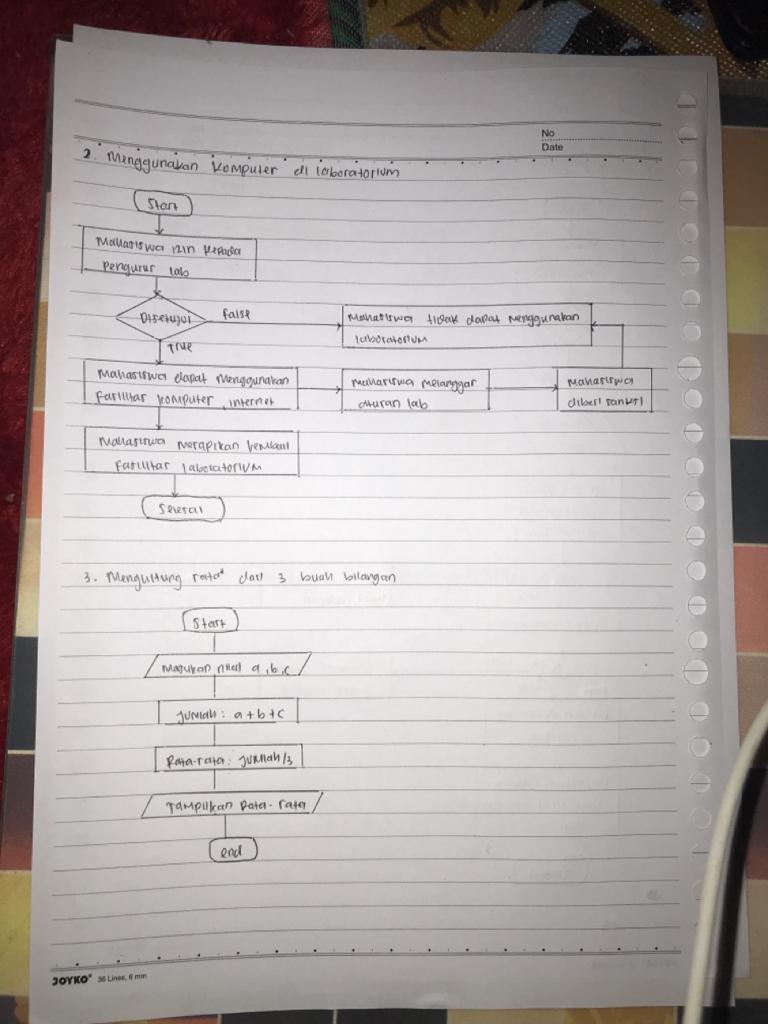 No
Date
2. Menggunakan komputer di laboratorium
Start
Mahasiswa izin kepada
pengurus lab
Disetujui
false
Mahasiswa tidak dapat menggunakan
laboratorium
True
Mahasiswa dapat menggunakan
fasilitas komputer, internet
Mahasiswa melanggar
aturan lab
Mahasiswa
diberi sanksi
Mahasiswa merapikan kembali
fasilitas laboratorium
Selesai
3. Menghitung rata² dari 3 buah bilangan
Start
Masukan nilai a, b, c
Jumlah : a + b + c
Rata-rata : Jumlah/3
Tampilkan Rata-rata
end
JOYKO® 36 Lines, 6 mm